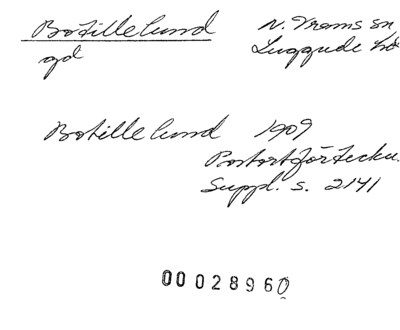 Botillelund N. Vrams sn
gd Luggude hd
Botillelund 1909
Postortförteckn.
Suppl. s. 2141
00028960